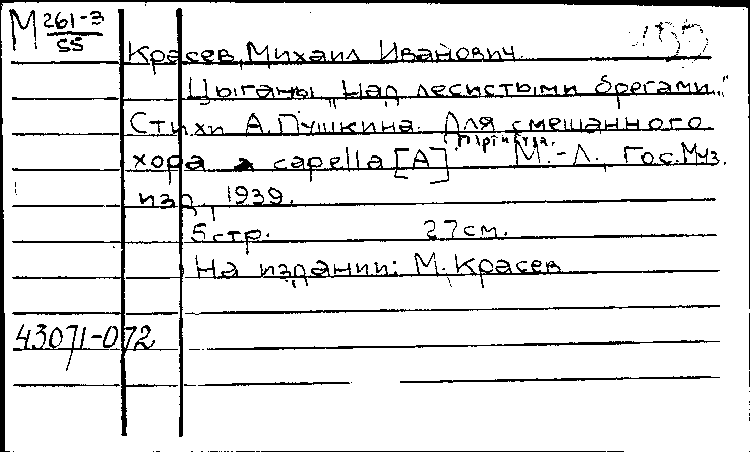 М 261-3
55
Красев, Михаил Иванович.
Цыганы "Над лесистыми брегами.."
Стихи А. Пушкина. Для смешанного
хора a capella [А] Партитура. М.-Л., Гос. Муз.
изд., 1939.
5 стр. 27 см.
На издании: М. Красев
43071-072